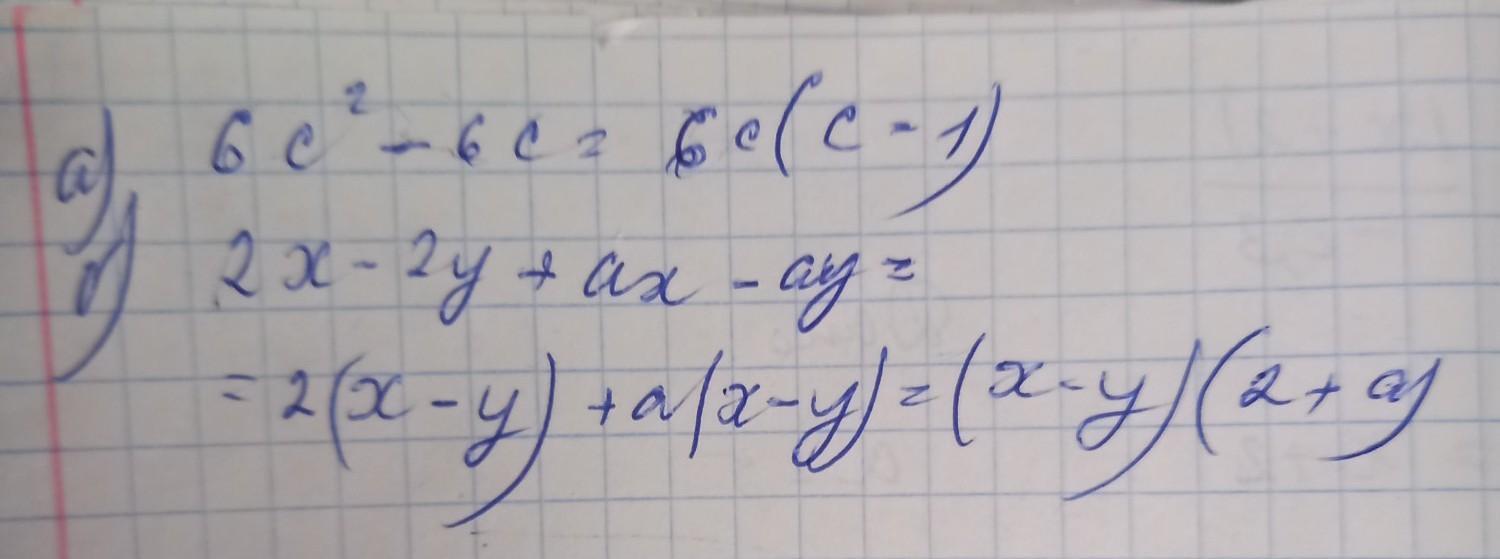 а) 6c² - 6c = 6c(c - 1)
б) 2x - 2y + ax - ay =
= 2(x - y) + a(x - y) = (x - y)(2 + a)